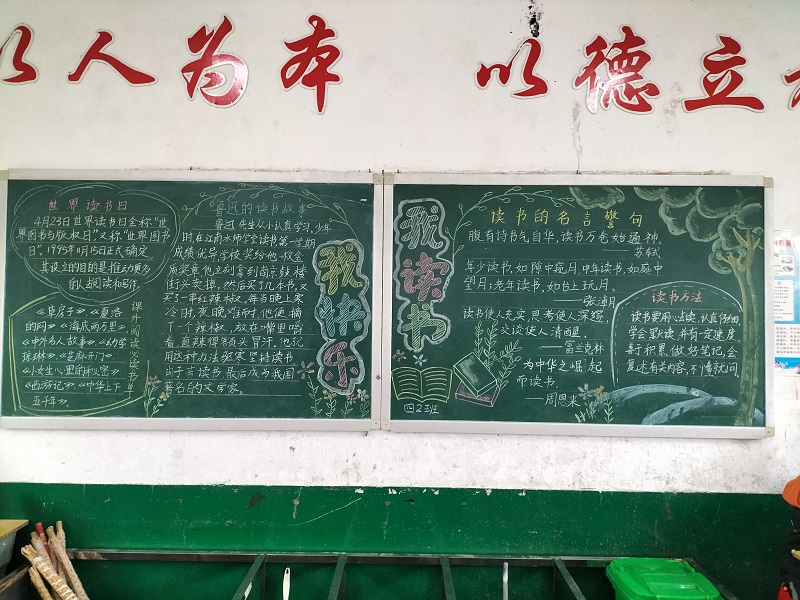 以人为本
以德立
世界读书日
4月23日世界读书日全称"世
界图书与版权日"又称"世界图书
日"。1995年11月15日正式确定
其设立的目的是推动更多
的人去阅读和写作。
课外阅读必读书目
《草房子》《夏洛
的网》《海底两万里》
《中外名人故事》《幼学
琼林》《芝麻开门》
《小女生心里的秘密》
《西游记》《中华上下
五千年》。
鲁迅的读书故事
鲁迅先生从小认真学习。少年
时,在江南水师学堂读书,第一学期
成绩优异,学校奖给他一枚金
质奖章,他立刻拿到南京鼓楼
街头卖掉,然后买了几本书,又
买了一串红辣椒,每当晚上寒
冷时,夜晚难耐时,他便摘
下一个辣椒,放在嘴里嚼
着,直辣得额头冒汗。他就
用这种办法驱寒坚持读书
由于苦读书,最后成为我国
著名的文学家。
我快乐
我读书
四2班
读书的名言警句
腹有诗书气自华,读书万卷始通神。
苏轼
年少读书,如隙中窥月,中年读书,如庭中
望月;老年读书,如台上玩月。
张潮
读书使人充实,思考使人深邃,
交谈使人清醒。
——富兰克林
为中华之崛起
而读书。
——周恩来
读书方法
读书要用心去读,认真仔细
学会默读,并有一定速度
善于积累,做好笔记,会
复述有关内容,不懂就问